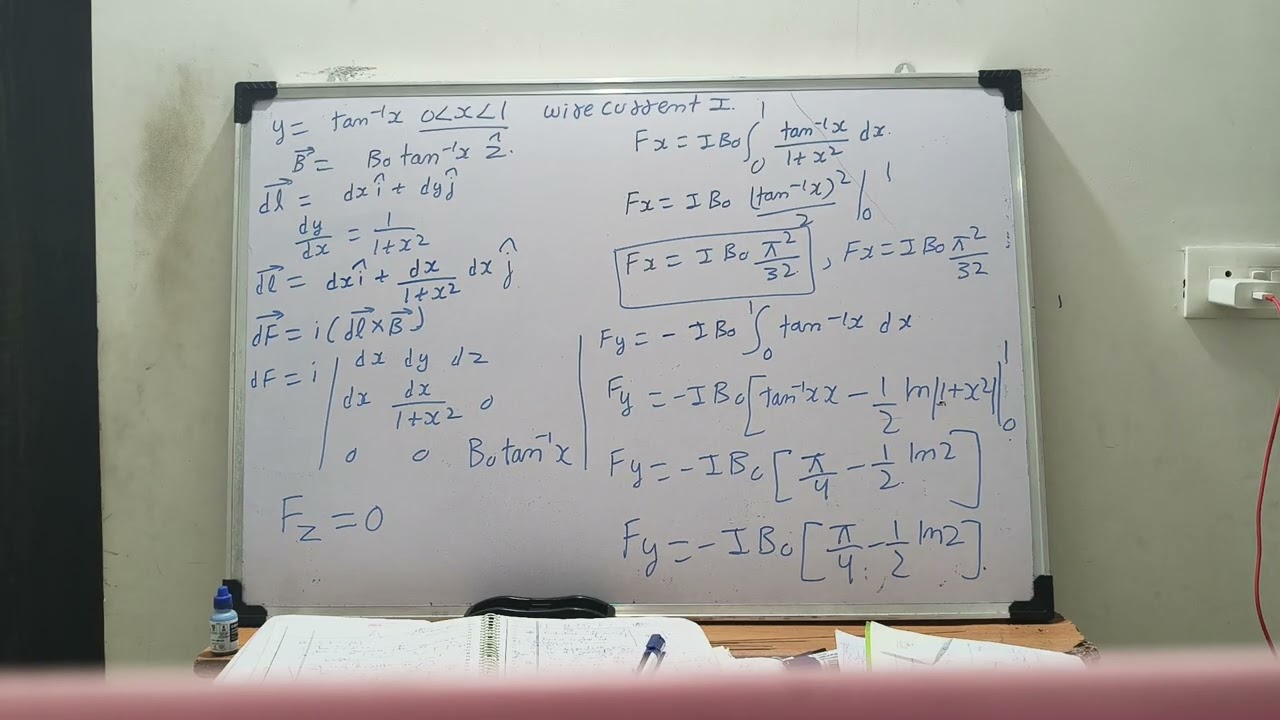 y = tan⁻¹x 0<x<1 wire current I.
B⃗ = B₀ tan⁻¹x ẑ.
d⃗l = dx î + dy ĵ
dy/dx = 1/(1+x²)
d⃗l = dx î + dx/(1+x²) dx ĵ
d⃗F = i(d⃗l × B⃗)
dF = i | dx dy dz |
| dx dx/(1+x²) 0 |
| 0 0 B₀ tan⁻¹x |
F_z = 0
Fx = I B₀ ∫₀¹ tan⁻¹x/(1+x²) dx.
Fx = I B₀ (tan⁻¹x)²/2 |₀¹
Fx = I B₀ π²/32 , Fx = I B₀ π²/32
Fy = - I B₀ ∫₀¹ tan⁻¹x dx
Fy = - I B₀ [tan⁻¹x x - 1/2 ln|1+x²| |₀¹
Fy = - I B₀ [π/4 - 1/2 ln2]
Fy = - I B₀ [π/4 - 1/2 ln2].